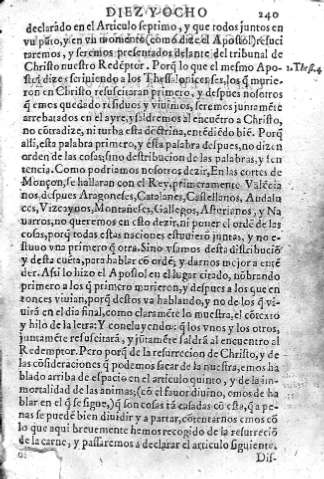 DIEZ Y OCHO 240
declarado en el Articulo septimo, y que todos juntos en
vn pũto, y en vn momẽto (como dize el Apostol) resuci
taremos, y seremos presentados delante del tribunal de
Christo nuestro Redẽptor. Porq̃ lo que el mesmo Apo- 1.Thess.4
stol dize escriuiendo a los Thessalonicenses, los q̃ murie-
ron en Christo resuscitaran primero, y despues nosotros
q̃ emos quedado residuos y viuiendo, seremos juntamẽte
arrebatados en el ayre, y saldremos al encuẽtro a Christo,
no cõtradize, ni turba esta doctrina, entẽdiẽdo biẽ. Porq̃
alli, esta palabra primero, y esta palabra despues, no dizen
orden de las cosas; sino destribucion de las palabras, y sen
tencia. Como podriamos nosotros dezir, En las cortes de
Monçon, se hallaran con el Rey, primeramente Valẽcia
nos, despues Aragoneses, Catalanes, Castellanos, Andalu
zes, Vizcaynos, Montañeses, Gallegos, Asturianos, y Na
uarros, no queremos en esto dezir, ni poner el ordẽ de las
cosas, porq̃ todas estas naciones estuuierõ juntas, y no e-
stuuo vna primero q̃ otra. Sino vsamos desta distribuciõ
y desta cuẽta, para hablar cõ ordẽ, y darnos mejor a entẽ
der. Assi lo hizo el Apostol en el lugar citado, nõbrando
primero a los q̃ primero murieron, y despues a los que en
tonces viuian, porq̃ destos va hablando, y no de los q̃ vi
uirã en el dia final, como claramẽte lo muestra, el cõtexto
y hilo de la letra: Y concluyendo: q̃ los vnos y los otros,
juntamẽte resuscitarã, y jũtamẽte saldrã al encuentro al
Redemptor. Pero porq̃ de la resurrecion de Christo, y de
las cõsideraciones q̃ podemos sacar de la nuestra, emos ha
blado arriba de espacio en el articulo quinto, y de la im-
mortalidad de las animas; (cõ el fauor diuino, emos de ha
blar en el q̃ se sigue,) q̃ son cosas tã casadas cõ esta, q̃ a pe-
nas se puedẽ bien diuidir y a partar, cõtentarnos emos cõ
lo que aqui breuemente hemos recogido de la resurreciõ
de la carne, y passaremos a declarar el articulo siguiente.
Dif-